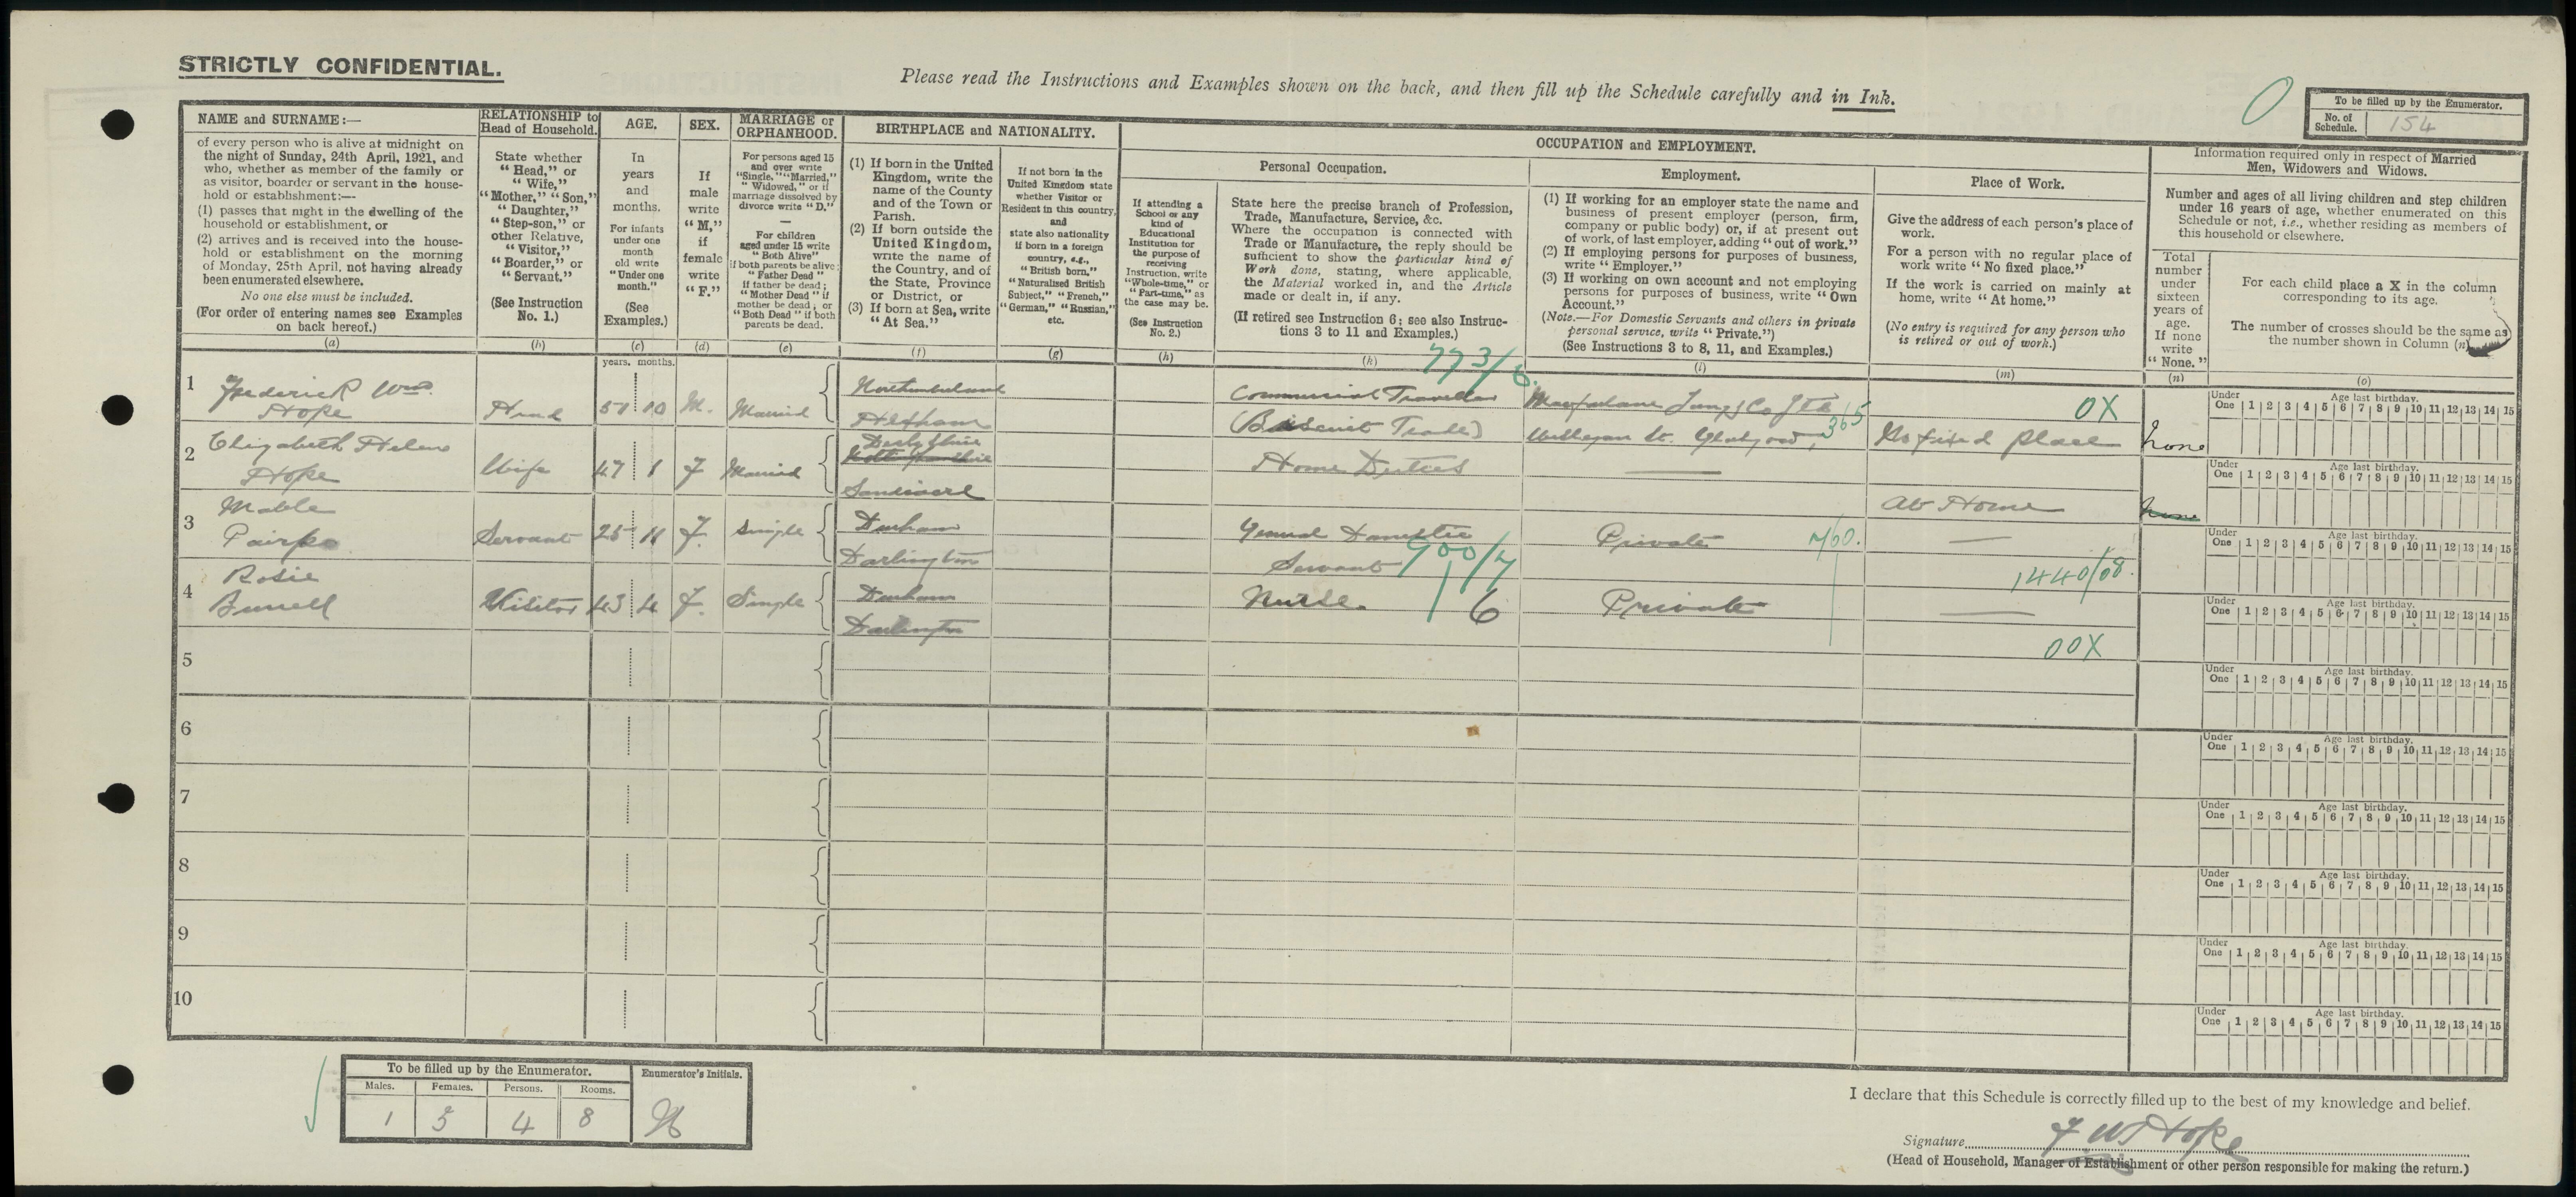 STRICTLY CONFIDENTIAL.
Please read the Instructions and Examples shown on the back, and then fill up the Schedule carefully and in Ink.
To be filled up by the Enumerator.
No. of Schedule. 154
NAME and SURNAME:—
of every person who is alive at midnight on
the night of Sunday, 24th April, 1921, and
who, whether as member of the family or
as visitor, boarder or servant in the house-
hold or establishment:—
(1) passes that night in the dwelling of the
household or establishment, or
(2) arrives and is received into the house-
hold or establishment on the morning
of Monday, 25th April, not having already
been enumerated elsewhere.
No one else must be included.
(For order of entering names see Examples
on back hereof.)
(a)
RELATIONSHIP to
Head of Household.
State whether
"Head," or
"Wife,"
"Mother," "Son,"
"Daughter,"
"Step-son," or
other Relative,
"Visitor,"
"Boarder," or
"Servant."
(See Instruction
No. 1.)
(b)
AGE.
In
years
and
months.
For infants
under one
month
old write
"Under one
month."
(See
Examples.)
(c)
years. months.
SEX.
If
male
write
"M,"
if
female
write
"F."
(d)
MARRIAGE or
ORPHANHOOD.
For persons aged 15
and over write
"Single," "Married,"
"Widowed," or if
marriage dissolved by
divorce write "D."
—
For children
aged under 15 write
"Both Alive"
if both parents be alive;
"Father Dead"
if father be dead;
"Mother Dead" if
mother be dead; or
"Both Dead" if both
parents be dead.
(e)
BIRTHPLACE and NATIONALITY.
(1) If born in the United
Kingdom, write the
name of the County
and of the Town or
Parish.
(2) If born outside the
United Kingdom,
write the name of
the Country, and of
the State, Province
or District, or
(3) If born at Sea, write
"At Sea."
(f)
If not born in the
United Kingdom state
whether Visitor or
Resident in this country,
and
state also nationality
if born in a foreign
country, e.g.,
"British born,"
"Naturalised British
Subject," "French,"
"German," "Russian,"
etc.
(g)
OCCUPATION and EMPLOYMENT.
Personal Occupation.
If attending a
School or any
kind of
Educational
Institution for
the purpose of
receiving
Instruction, write
"Whole-time," or
"Part-time," as
the case may be.
(See Instruction
No. 2.)
(h)
State here the precise branch of Profession,
Trade, Manufacture, Service, &c.
Where the occupation is connected with
Trade or Manufacture, the reply should be
sufficient to show the particular kind of
Work done, stating, where applicable,
the Material worked in, and the Article
made or dealt in, if any.
(If retired see Instruction 6; see also Instruc-
tions 3 to 11 and Examples.)
(k)
Employment.
(1) If working for an employer state the name and
business of present employer (person, firm,
company or public body) or, if at present out
of work, of last employer, adding "out of work."
(2) If employing persons for purposes of business,
write "Employer."
(3) If working on own account and not employing
persons for purposes of business, write "Own
Account."
(Note.—For Domestic Servants and others in private
personal service, write "Private.")
(See Instructions 3 to 8, 11, and Examples.)
(l)
Place of Work.
Give the address of each person's place of
work.
For a person with no regular place of
work write "No fixed place."
If the work is carried on mainly at
home, write "At home."
(No entry is required for any person who
is retired or out of work.)
(m)
Information required only in respect of Married
Men, Widowers and Widows.
Number and ages of all living children and step children
under 16 years of age, whether enumerated on this
Schedule or not, i.e., whether residing as members of
this household or elsewhere.
Total
number
under
sixteen
years of
age.
If none
write
"None."
(n)
For each child place a X in the column
corresponding to its age.
The number of crosses should be the same as
the number shown in Column (n)
(o)
1 Frederick Wm. Hope Head 51 10 M. Married Northumberland Hexham Commercial Traveller (Biscuit Trade) Macfarlane Lang & Co Ltd No fixed place None
773/6.
365
0X
Under One 1 2 3 4 5 6 7 8 9 10 11 12 13 14 15
Age last birthday.
2 Elizabeth Helen Hope Wife 47 1 F Married Derbyshire Sandiacre Home Duties — At Home
Under One 1 2 3 4 5 6 7 8 9 10 11 12 13 14 15
Age last birthday.
3 Mable Servant 25 11 F. Single Durham Darlington General Domestic Servant Private —
900/7
1440/08.
Under One 1 2 3 4 5 6 7 8 9 10 11 12 13 14 15
Age last birthday.
4 Rosie Visitor 43 4 F. Single Durham Darlington Nurse. 6 Private —
00X
Under One 1 2 3 4 5 6 7 8 9 10 11 12 13 14 15
Age last birthday.
5
Under One 1 2 3 4 5 6 7 8 9 10 11 12 13 14 15
Age last birthday.
6
Under One 1 2 3 4 5 6 7 8 9 10 11 12 13 14 15
Age last birthday.
7
Under One 1 2 3 4 5 6 7 8 9 10 11 12 13 14 15
Age last birthday.
8
Under One 1 2 3 4 5 6 7 8 9 10 11 12 13 14 15
Age last birthday.
9
Under One 1 2 3 4 5 6 7 8 9 10 11 12 13 14 15
Age last birthday.
10
Under One 1 2 3 4 5 6 7 8 9 10 11 12 13 14 15
Age last birthday.
To be filled up by the Enumerator.
Enumerator's Initials.
Males. Females. Persons. Rooms.
1 3 4 8
I declare that this Schedule is correctly filled up to the best of my knowledge and belief.
Signature F W Hope
(Head of Household, Manager of Establishment or other person responsible for making the return.)